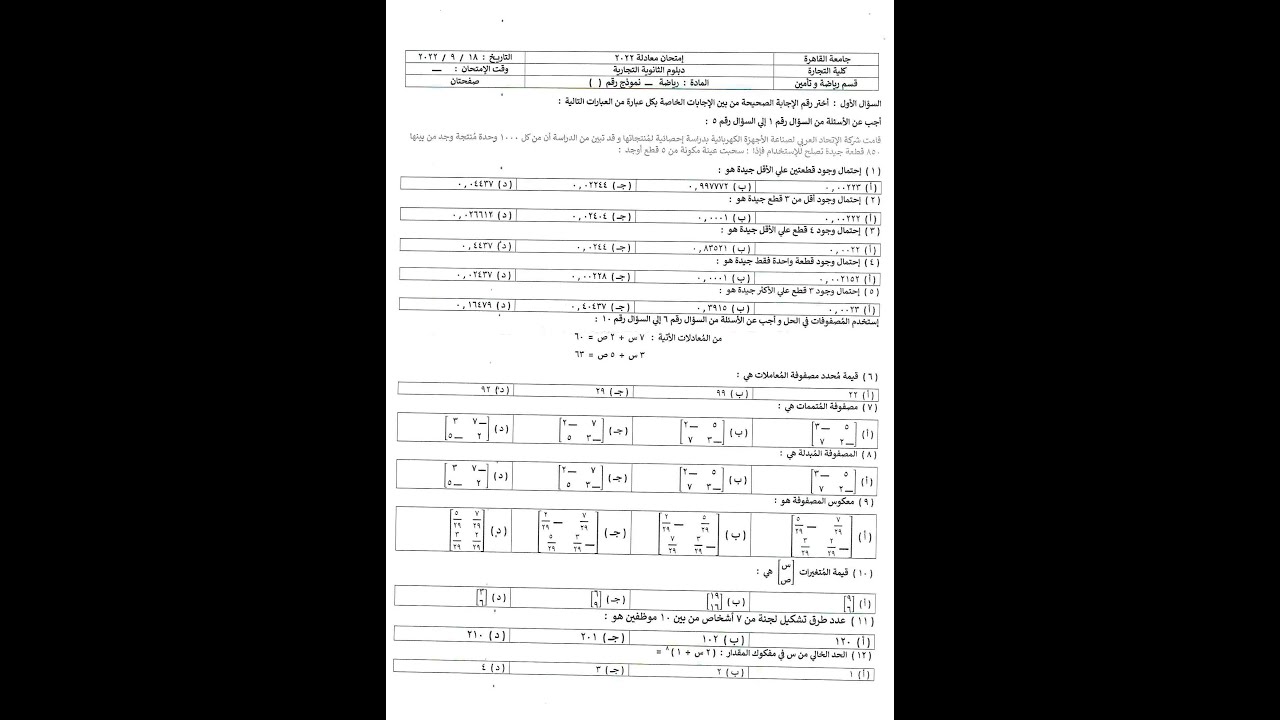 جامعة القاهرة إمتحان معادلة ٢٠٢٢ التاريخ : ١٨ / ٩ / ٢٠٢٢
كلية التجارة دبلوم الثانوية التجارية وقت الإمتحان : ــ
قسم رياضة و تأمين المادة : رياضة ــ نموذج رقم ( ) صفحتان
السؤال الأول : أختر رقم الإجابة الصحيحة من بين الإجابات الخاصة بكل عبارة من العبارات التالية :
أجب عن الأسئلة من السؤال رقم ١ إلي السؤال رقم ٥ :
قامت شركة الإتحاد العربي لصناعة الأجهزة الكهربائية بدراسة إحصائية لمُنتجاتها و قد تبين من الدراسة أن من كل ١٠٠٠ وحدة مُنتجة وجد من بينها
٨٥٠ قطعة جيدة تصلح للإستخدام فإذا : سحبت عينة مكونة من ٥ قطع أوجد :
(١) إحتمال وجود قطعتين علي الأقل جيدة هو :
(أ) ٠,٠٠٢٢٣ (ب) ٠,٩٩٧٧٧٢ (جـ) ٠,٠٢٢٤٤ (د) ٠,٠٤٤٣٧
(٢) إحتمال وجود أقل من ٣ قطع جيدة هو :
(أ) ٠,٠٠٢٢٢ (ب) ٠,٠٠٠١ (جـ) ٠,٠٢٤٠٤ (د) ٠,٠٢٦٦١٢
(٣) إحتمال وجود ٤ قطع علي الأقل جيدة هو :
(أ) ٠,٠٠٢٢ (ب) ٠,٨٣٥٢١ (جـ) ٠,٠٢٤٤ (د) ٠,٤٤٣٧
(٤) إحتمال وجود قطعة واحدة فقط جيدة هو :
(أ) ٠,٠٠٢١٥٢ (ب) ٠,٠٠٠١ (جـ) ٠,٠٠٢٢٨ (د) ٠,٠٢٤٣٧
(٥) إحتمال وجود ٣ قطع علي الأكثر جيدة هو :
(أ) ٠,٠٠٢٣ (ب) ٠,٣٩١٥ (جـ) ٠,٤٠٤٣٧ (د) ٠,١٦٤٧٩
إستخدم المُصفوفات في الحل و أجب عن الأسئلة من السؤال رقم ٦ إلي السؤال رقم ١٠ :
من المُعادلات الأتية : ٧ س + ٢ ص = ٦٠
٣ س + ٥ ص = ٦٣
(٦) قيمة مُحدد مصفوفة المُعاملات هي :
(أ) ٢٢ (ب) ٩٩ (جـ) ٢٩ (د) ٩٢
(٧) مصفوفة المُتممات هي :
(أ) ٥ ــ٣ (ب) ٥ ــ٢ (جـ) ٧ ــ٢ (د) ــ٧ ٣
ــ٢ ٧ ــ٣ ٧ ــ٣ ٥ ٢ ــ٥
(٨) المصفوفة المُبدلة هي :
(أ) ٥ ــ٣ (ب) ٥ ــ٢ (جـ) ٧ ــ٢ (د) ــ٧ ٣
ــ٢ ٧ ــ٣ ٧ ــ٣ ٥ ٢ ــ٥
(٩) معكوس المصفوفة هو :
(أ) ٧/٢٩ ــ ٥/٢٩ (ب) ٥/٢٩ ــ ٢/٢٩ (جـ) ٧/٢٩ ــ ٢/٢٩ (د) ٧/٢٩ ٥/٢٩
ــ ٢/٢٩ ٣/٢٩ ــ ٣/٢٩ ٧/٢٩ ــ ٣/٢٩ ٥/٢٩ ٢/٢٩ ٣/٢٩
(١٠) قيمة المُتغيرات [س ص] هي :
(أ) [٩ ٦] (ب) [١٩ ١٦] (جـ) [٦ ٩] (د) [٣ ٦]
(١١) عدد طرق تشكيل لجنة من ٧ أشخاص من بين ١٠ موظفين هو :
(أ) ١٢٠ (ب) ١٠٢ (جـ) ٢٠١ (د) ٢١٠
(١٢) الحد الخالي من س في مفكوك المقدار : (٢ س + ١)^٨ =
(أ) ١ (ب) ٢ (جـ) ٣ (د) ٤